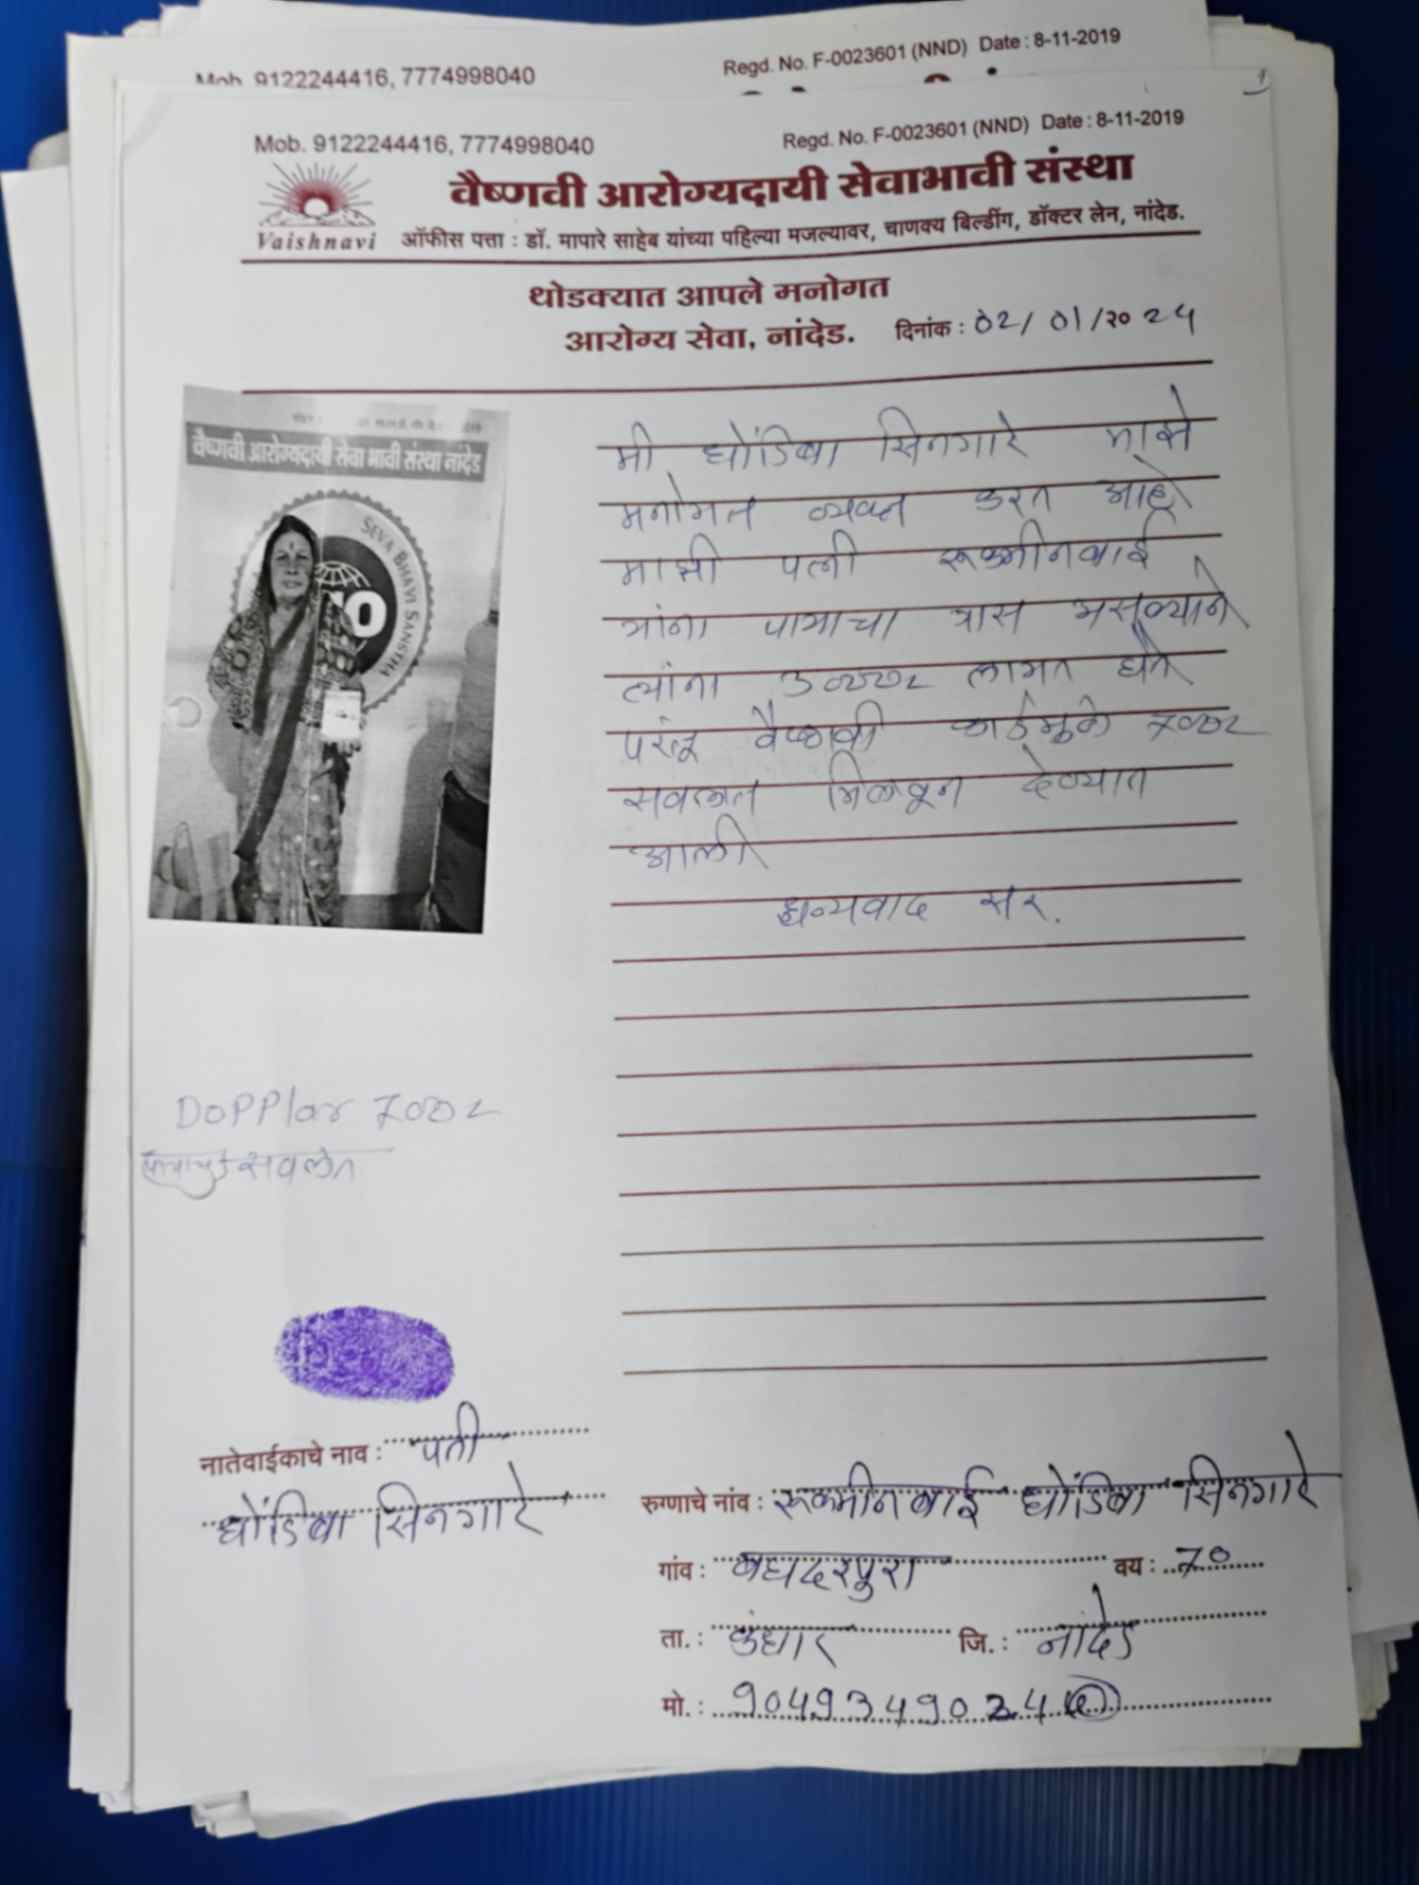 Mob. 9122244416, 7774998040
Regd. No. F-0023601 (NND) Date : 8-11-2019
Mob. 9122244416, 7774998040
Regd. No. F-0023601 (NND) Date : 8-11-2019
वैष्णवी आरोग्यदायी सेवाभावी संस्था
Vaishnavi
ऑफीस पत्ता : डॉ. मापारे साहेब यांच्या पहिल्या मजल्यावर, चाणक्य बिल्डींग, डॉक्टर लेन, नांदेड.
थोडक्यात आपले मनोगत
आरोग्य सेवा, नांदेड.
दिनांक : 02/ 01/२० 24
वैष्णवी आरोग्यदायी सेवा भावी संस्था नांदेड
SEVA BHAVI SANSTHA
मी धोंडिबा सिनगारे माझे
मनोगत व्यक्त करत आहे
माझी पत्नी रूक्मीनबाई
यांना पायाचा त्रास असल्याने
त्यांना लागत होते
परंतू वैष्णवी कार्डमुळे
सवलत मिळवून देण्यात
आली
धन्यवाद सर.
DoPPlar
सवलत
नातेवाईकाचे नाव : पती
धोंडिबा सिनगारे
रुग्णाचे नांव : रूक्मीनबाई धोंडिबा सिनगारे
गांव : बहादरपुरा वय : 70
ता. : कंधार जि. : नांदेड
मो. :